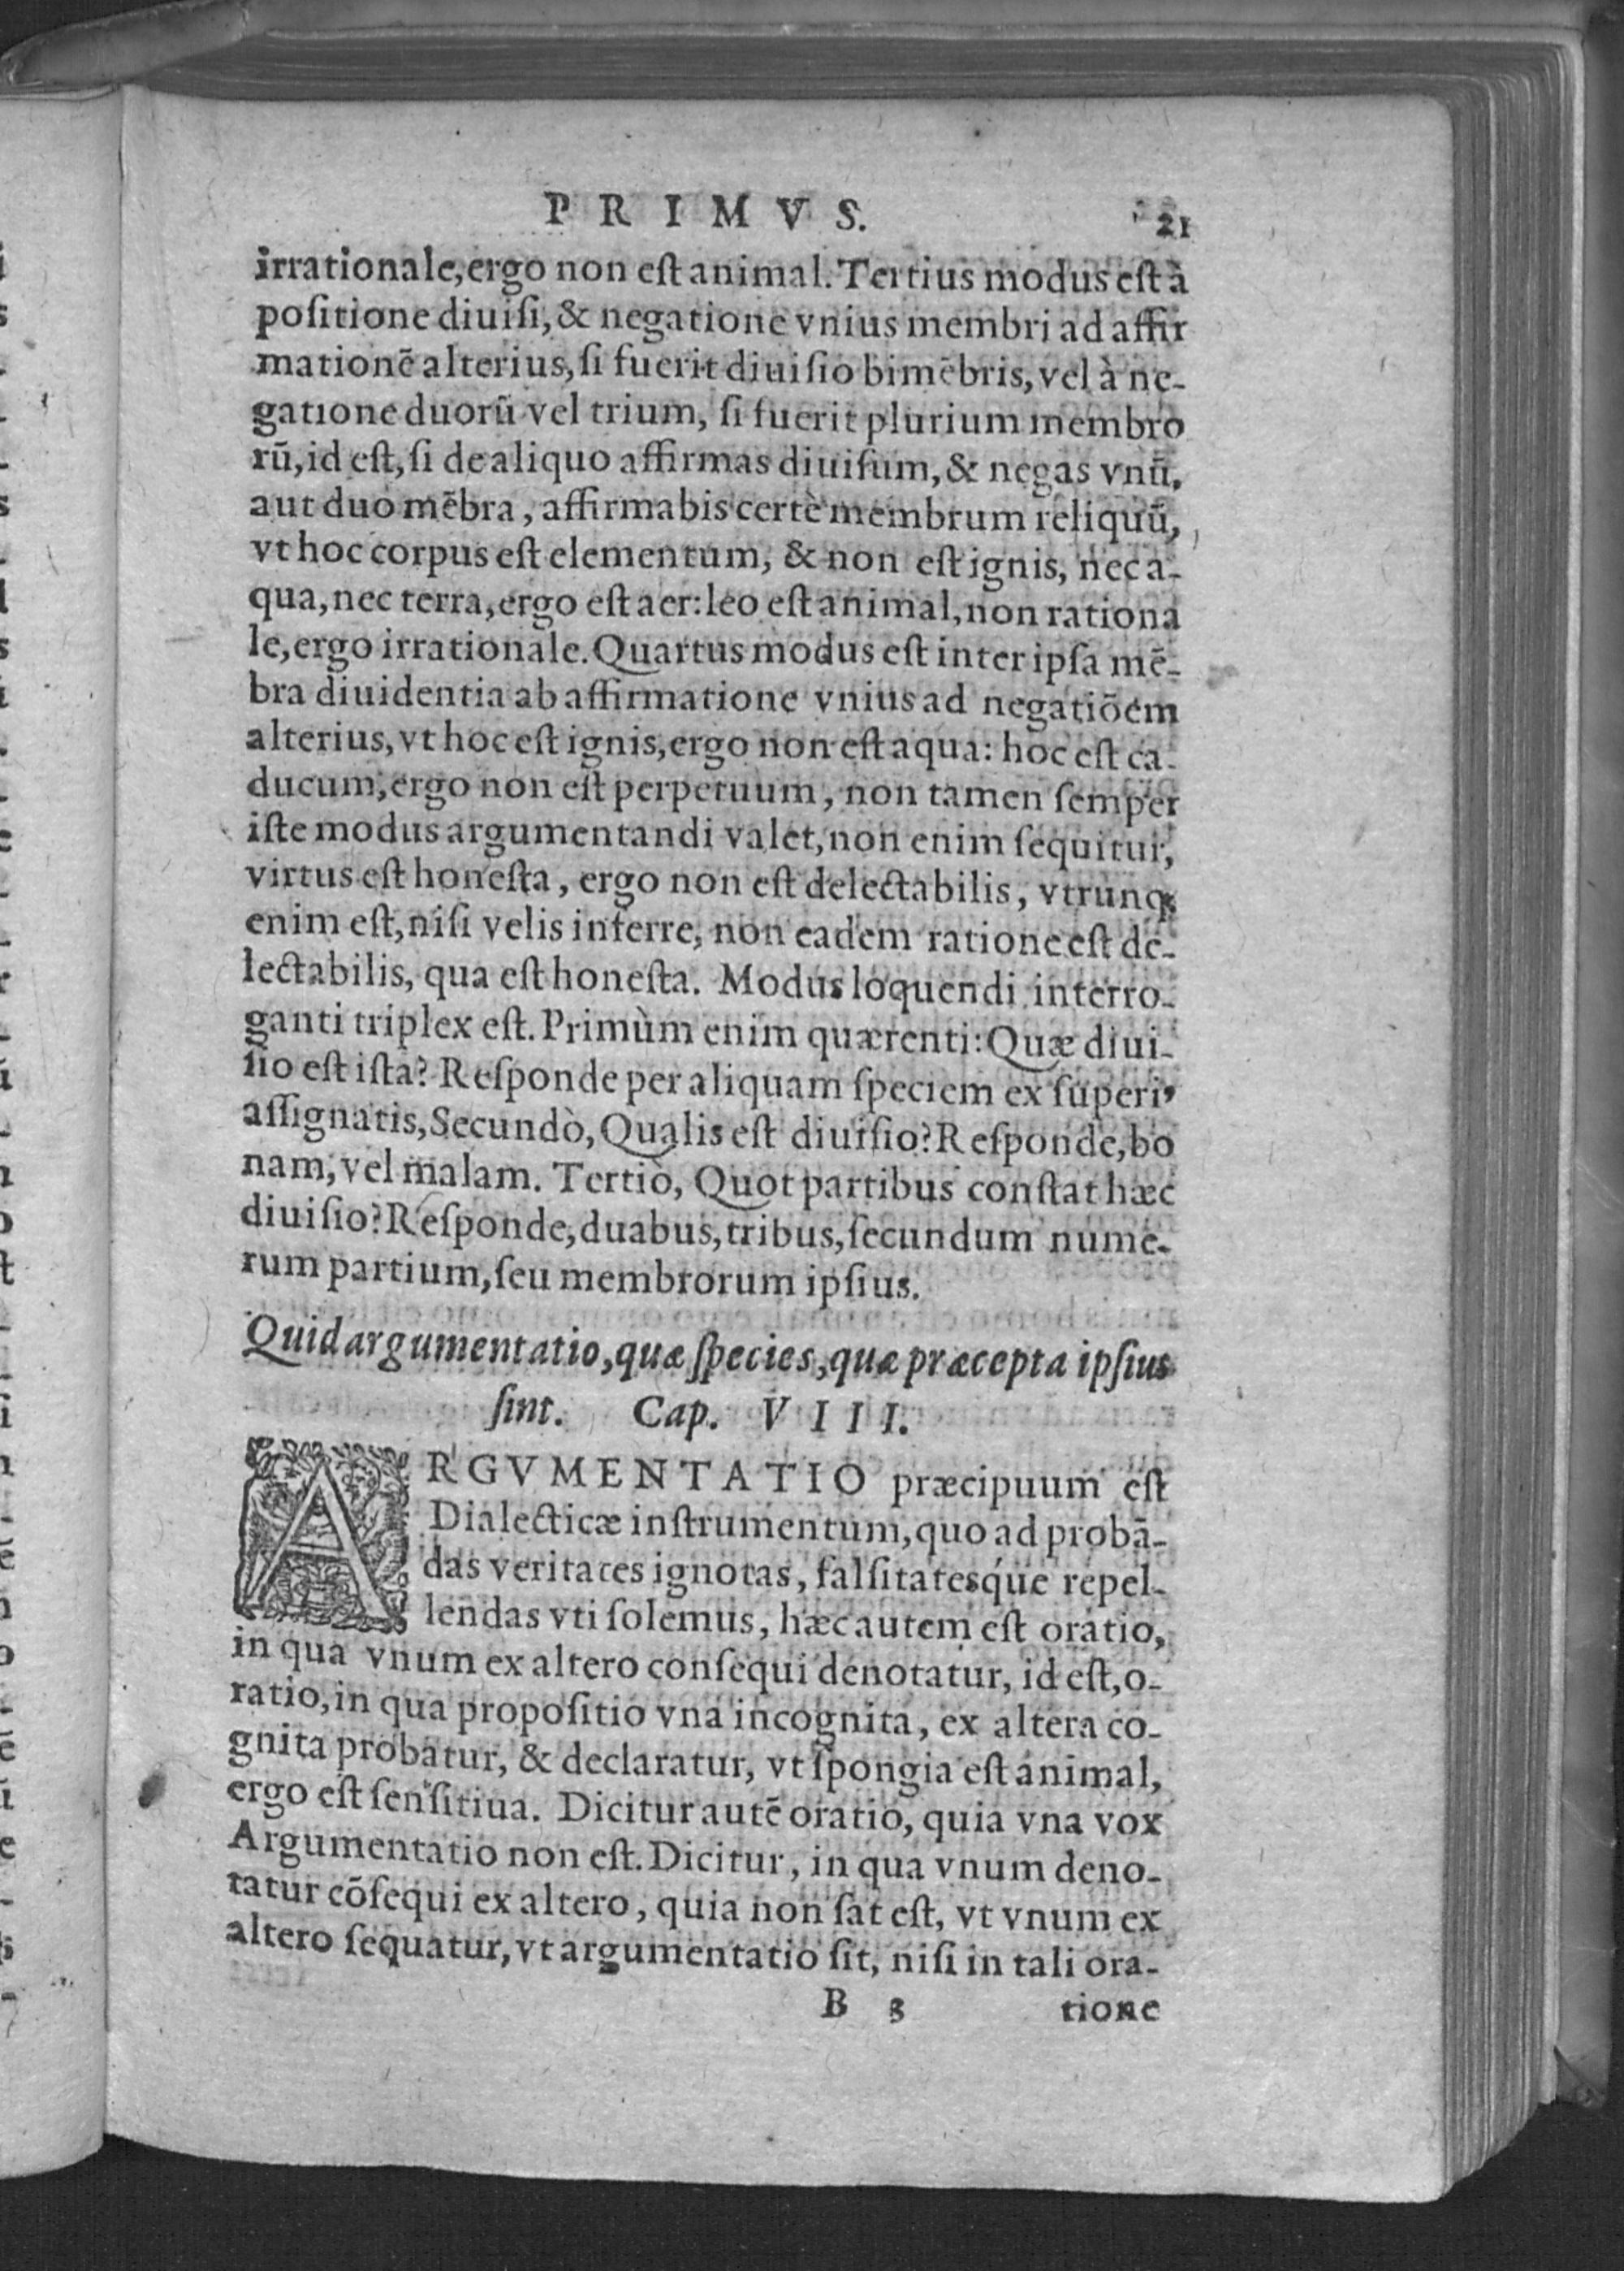 PRIMVS. 21
irrationale, ergo non est animal. Tertius modus est à
positione diuisi, & negatione vnius membri ad affir
mationē alterius, si fuerit diuisio bimēbris, vel à ne-
gatione duorū vel trium, si fuerit plurium membro
rū, id est, si de aliquo affirmas diuisum, & negas vnū,
aut duo mēbra, affirmabis certè membrum reliquū,
vt hoc corpus est elementum, & non est ignis, nec a-
qua, nec terra, ergo est aer: leo est animal, non rationa
le, ergo irrationale. Quartus modus est inter ipsa mē-
bra diuidentia ab affirmatione vnius ad negatiōem
alterius, vt hoc est ignis, ergo non est aqua: hoc est ca-
ducum, ergo non est perpetuum, non tamen semper
iste modus argumentandi valet, non enim sequitur,
virtus est honesta, ergo non est delectabilis, vtrunq;
enim est, nisi velis inferre, non eadem ratione est de-
lectabilis, qua est honesta. Modus loquendi interro-
ganti triplex est. Primùm enim quærenti: Quæ diui-
sio est ista? Responde per aliquam speciem ex superi'
assignatis, Secundò, Qualis est diuisio? Responde, bo
nam, vel malam. Tertiò, Quot partibus constat hæc
diuisio? Responde, duabus, tribus, secundum nume-
rum partium, seu membrorum ipsius.
Quid argumentatio, quæ species, quæ præcepta ipsius
sint. Cap. VIII.
ARGVMENTATIO præcipuum est
Dialecticæ instrumentum, quo ad probā-
das veritates ignotas, falsitatesq́ue repel-
lendas vti solemus, hæc autem est oratio,
in qua vnum ex altero consequi denotatur, id est, o-
ratio, in qua propositio vna incognita, ex altera co-
gnita probatur, & declaratur, vt spongia est animal,
ergo est sensitiua. Dicitur autē oratio, quia vna vox
Argumentatio non est. Dicitur, in qua vnum deno-
tatur cōsequi ex altero, quia non sat est, vt vnum ex
altero sequatur, vt argumentatio sit, nisi in tali ora-
B 3 tione